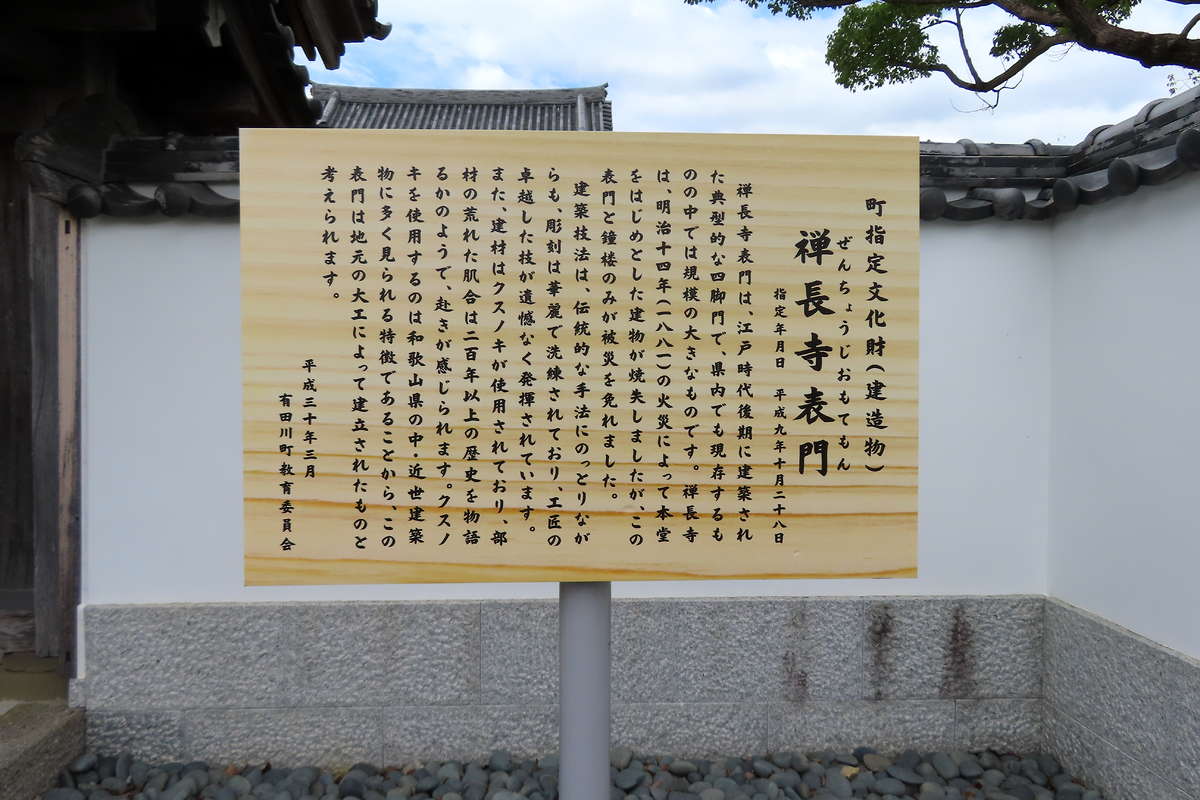 町指定文化財(建造物)
ぜんちょうじおもてもん
禅長寺表門
指定年月日 平成九年十月二十八日
禅長寺表門は、江戸時代後期に建築され
た典型的な四脚門で、県内でも現存するも
のの中では規模の大きなものです。禅長寺
は、明治十四年(一八八一)の火災によって本堂
をはじめとした建物が焼失しましたが、この
表門と鐘楼のみが被災を免れました。
建築技法は、伝統的な手法にのっとりなが
らも、彫刻は華麗で洗練されており、工匠の
卓越した技が遺憾なく発揮されています。
また、建材はクスノキが使用されており、部
材の荒れた肌合は二百年以上の歴史を物語
るかのようで、赴きが感じられます。クスノ
キを使用するのは和歌山県の中・近世建築
物に多く見られる特徴であることから、この
表門は地元の大工によって建立されたものと
考えられます。
平成三十年三月
有田川町教育委員会